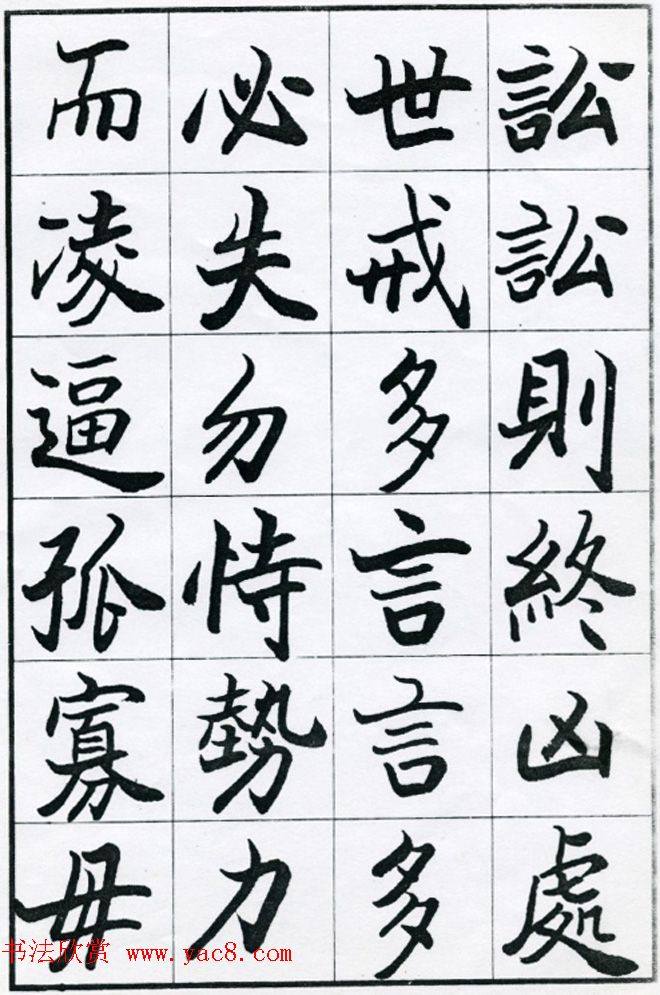 訟訟則終凶處
世戒多言言多
必失勿恃勢力
而凌逼孤寡毋
书法欣赏 www.yac8.com